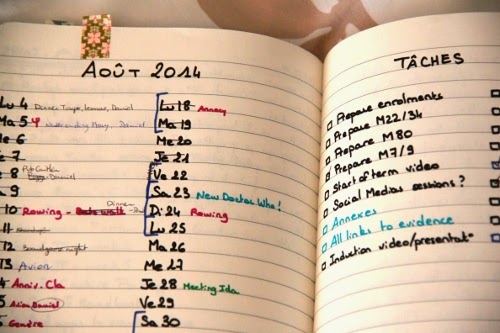 Août 2014
Lu 4 Daniel
Ma 5 Mary, Daniel
Me 6
e 7
e 8 Daniel
a 9
10 Rowing - Dinner
11
12
13 Avion
4 Anniv. Cla
5 Daniel
6 Gendre
Lu 18 Annecy
Ma 19
Me 20
Je 21
Ve 22
Sa 23 New Doctor Who!
Di 24 Rowing
Lu 25
Ma 26
Me 27
Je 28 Meeting Ida
Ve 29
Sa 30
TÂCHES
Prepare enrolments
Prepare M22/34
Prepare M80
Prepare M7/9
Start of term video
Social Medias sessions?
Annexes
All links to evidence
Induction video/presentat